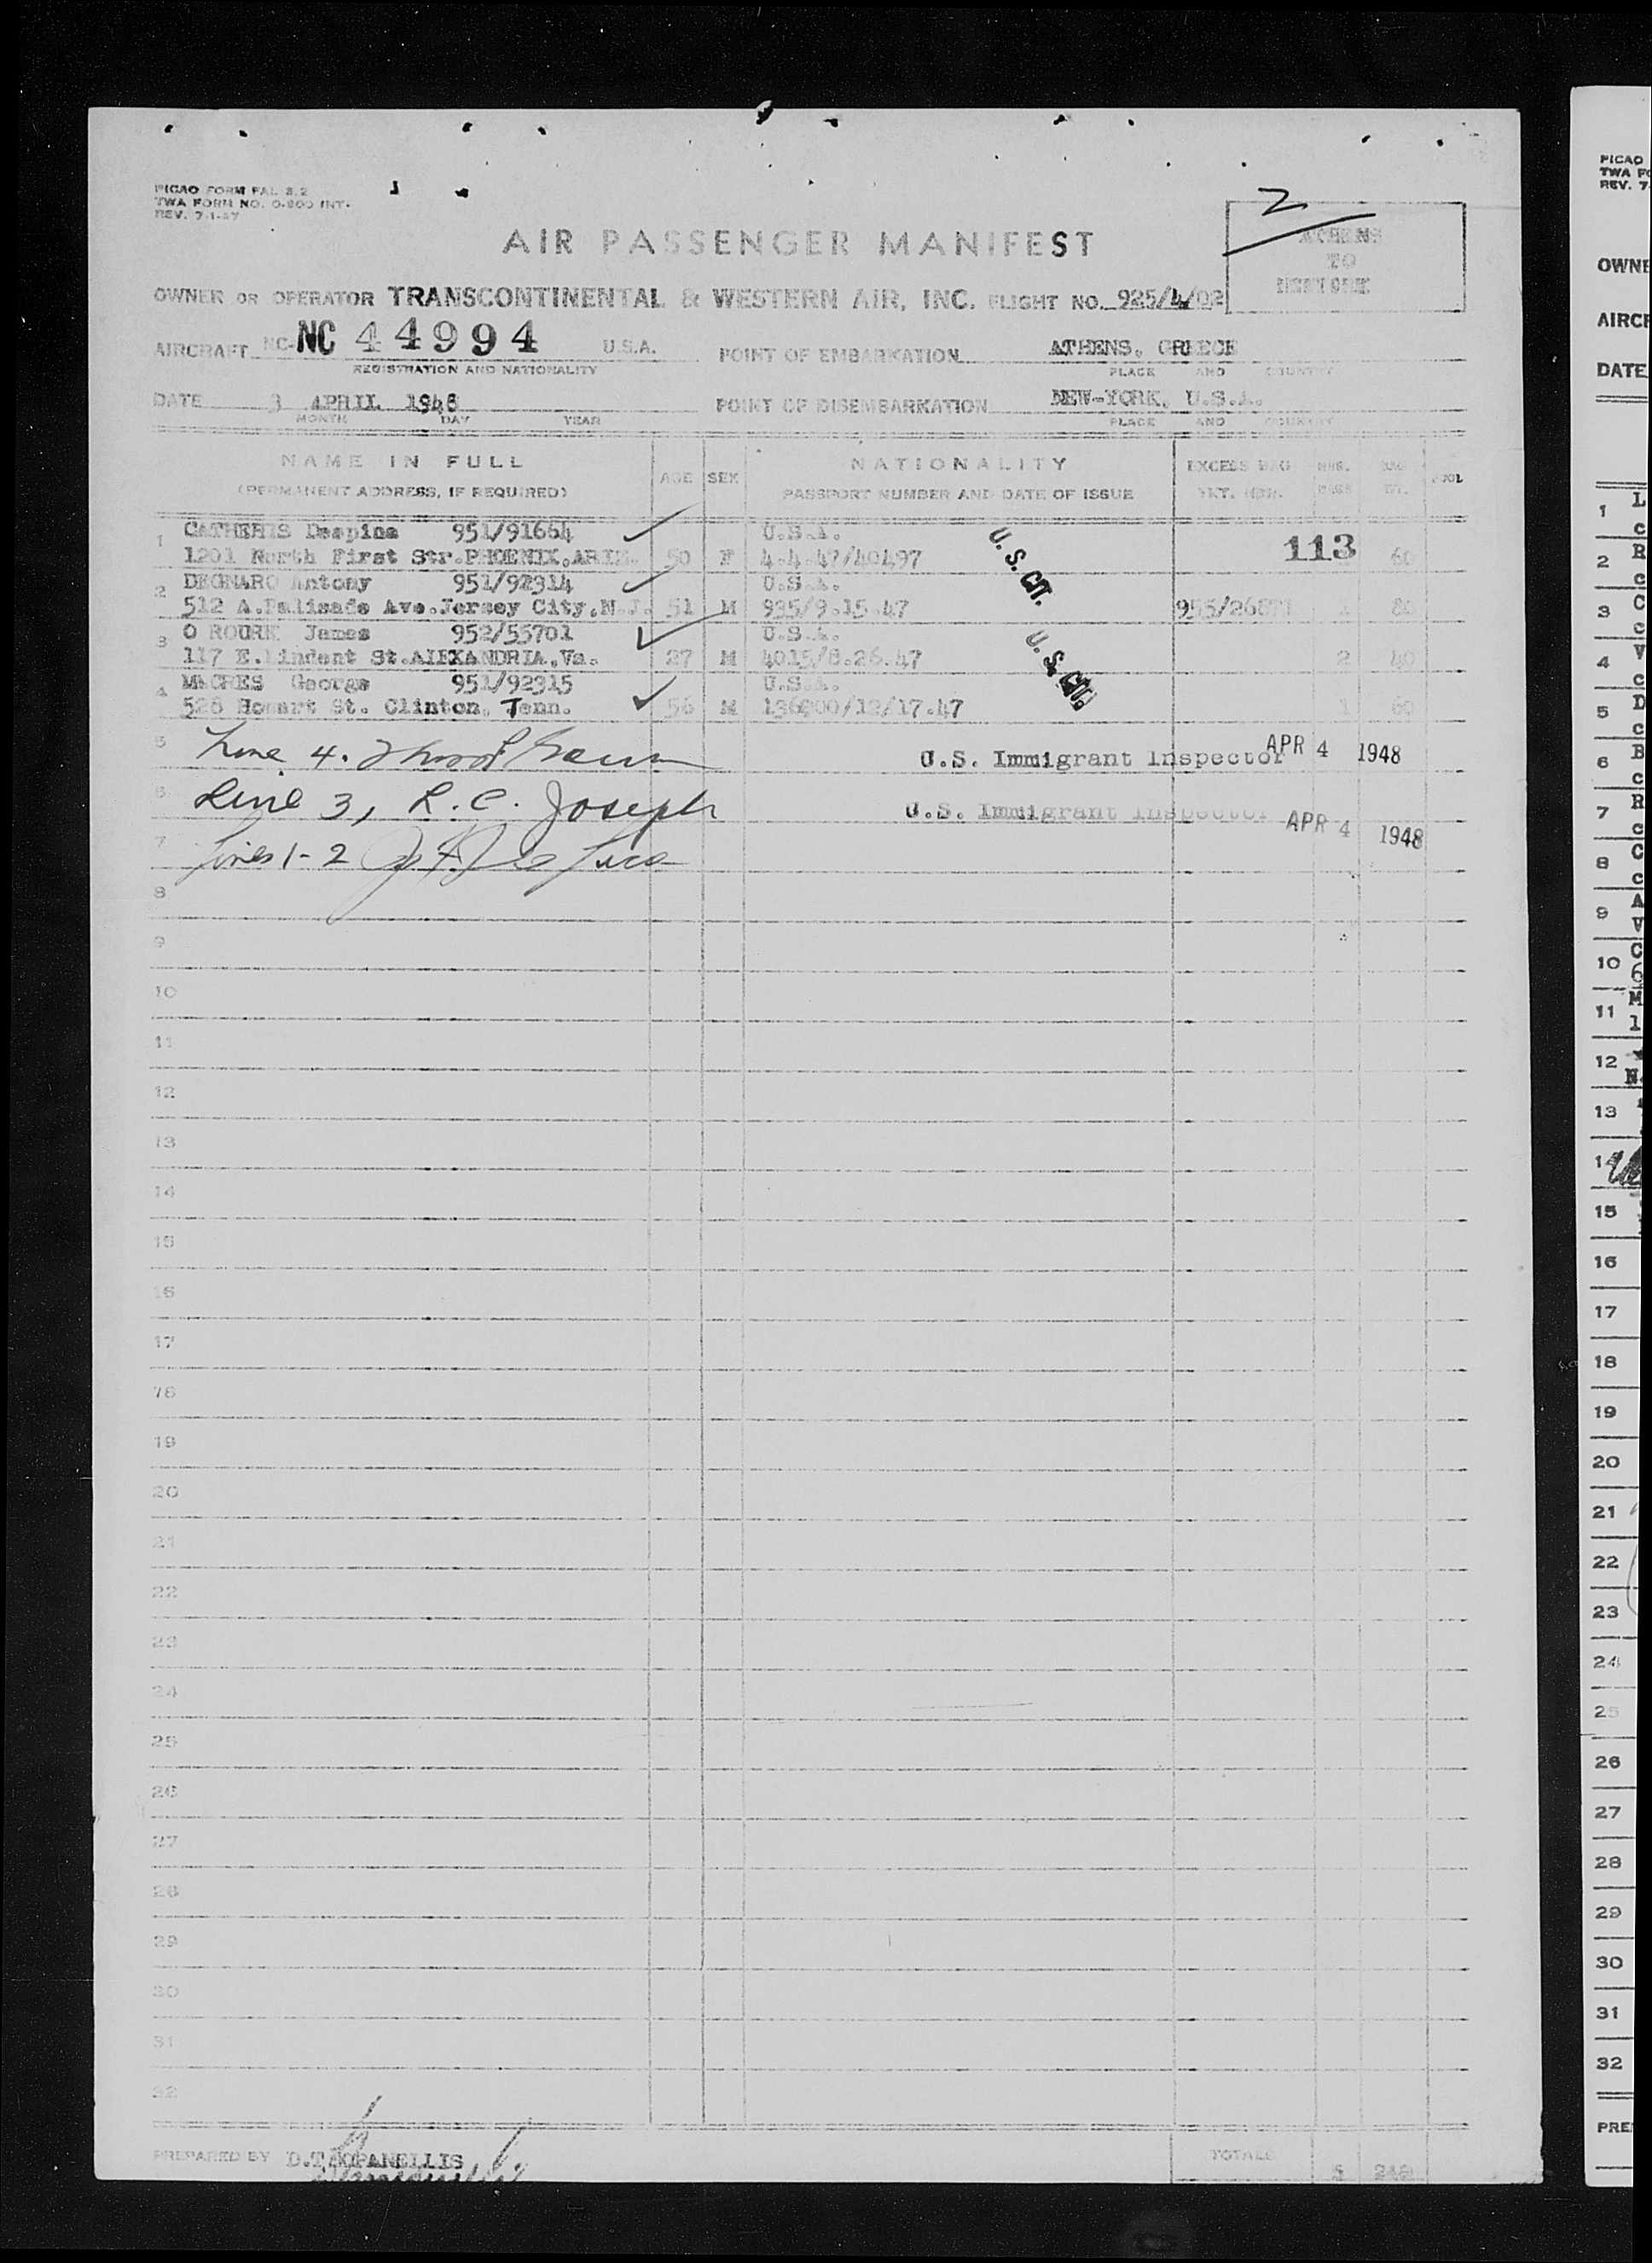 PICAO FORM FAL 2.2
TWA FORM NO. O-800 INT.
REV. 7-1-47
2
AIR PASSENGER MANIFEST
ATHENS
TO
NEW YORK
OWNER OR OPERATOR TRANSCONTINENTAL & WESTERN AIR, INC. FLIGHT NO. 925/4/02
AIRCRAFT NC- NC 44994 U.S.A. POINT OF EMBARKATION ATHENS, GREECE
REGISTRATION AND NATIONALITY PLACE AND COUNTRY
DATE 3 APRIL 1948 POINT OF DISEMBARKATION NEW-YORK, U.S.A.
MONTH DAY YEAR PLACE AND COUNTRY
NAME IN FULL AGE SEX NATIONALITY EXCESS BAG
(PERMANENT ADDRESS, IF REQUIRED) PASSPORT NUMBER AND DATE OF ISSUE TKT. NBR.
1 CATHERIS Despina 951/91664 U.S.A. U. S. CIT. 113
1201 North First Str.PHOENIX,ARIZ. 50 F 4-4-47/40497 60
2 951/92314 U.S.A.
512 A.Palisade Ave.Jersey City,N.J. 51 M 935/9.15.47 1 80
3 O ROURK James 952/55701 U.S.A. U. S. CIT.
117 E. St.ALEXANDRIA,Va. 27 M 4015/8.26.47 2 40
4 MACRES George 951/92315 U.S.A.
528 St. Clinton, Tenn. 56 M 1 60
5 Line 4. U.S. Immigrant Inspector APR 4 1948
6 Line 3, R. C. Joseph U.S. Immigrant Inspector APR 4 1948
7 Lines 1-2
8
9
10
11
12
13
14
15
16
17
18
19
20
21
22
23
24
25
26
27
28
29
30
31
32
PREPARED BY TOTALS 5 240
PICAO
TWA FO
REV. 7
OWNE
AIRCR
DATE
1
2
3
4
5
6
7
8
9
10
11
12
13
14
15
16
17
18
19
20
21
22
23
24
25
26
27
28
29
30
31
32
PRE